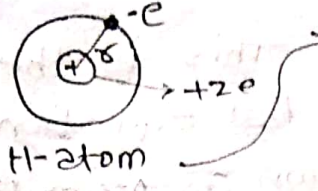 -e
+ r
+ze
H-atom